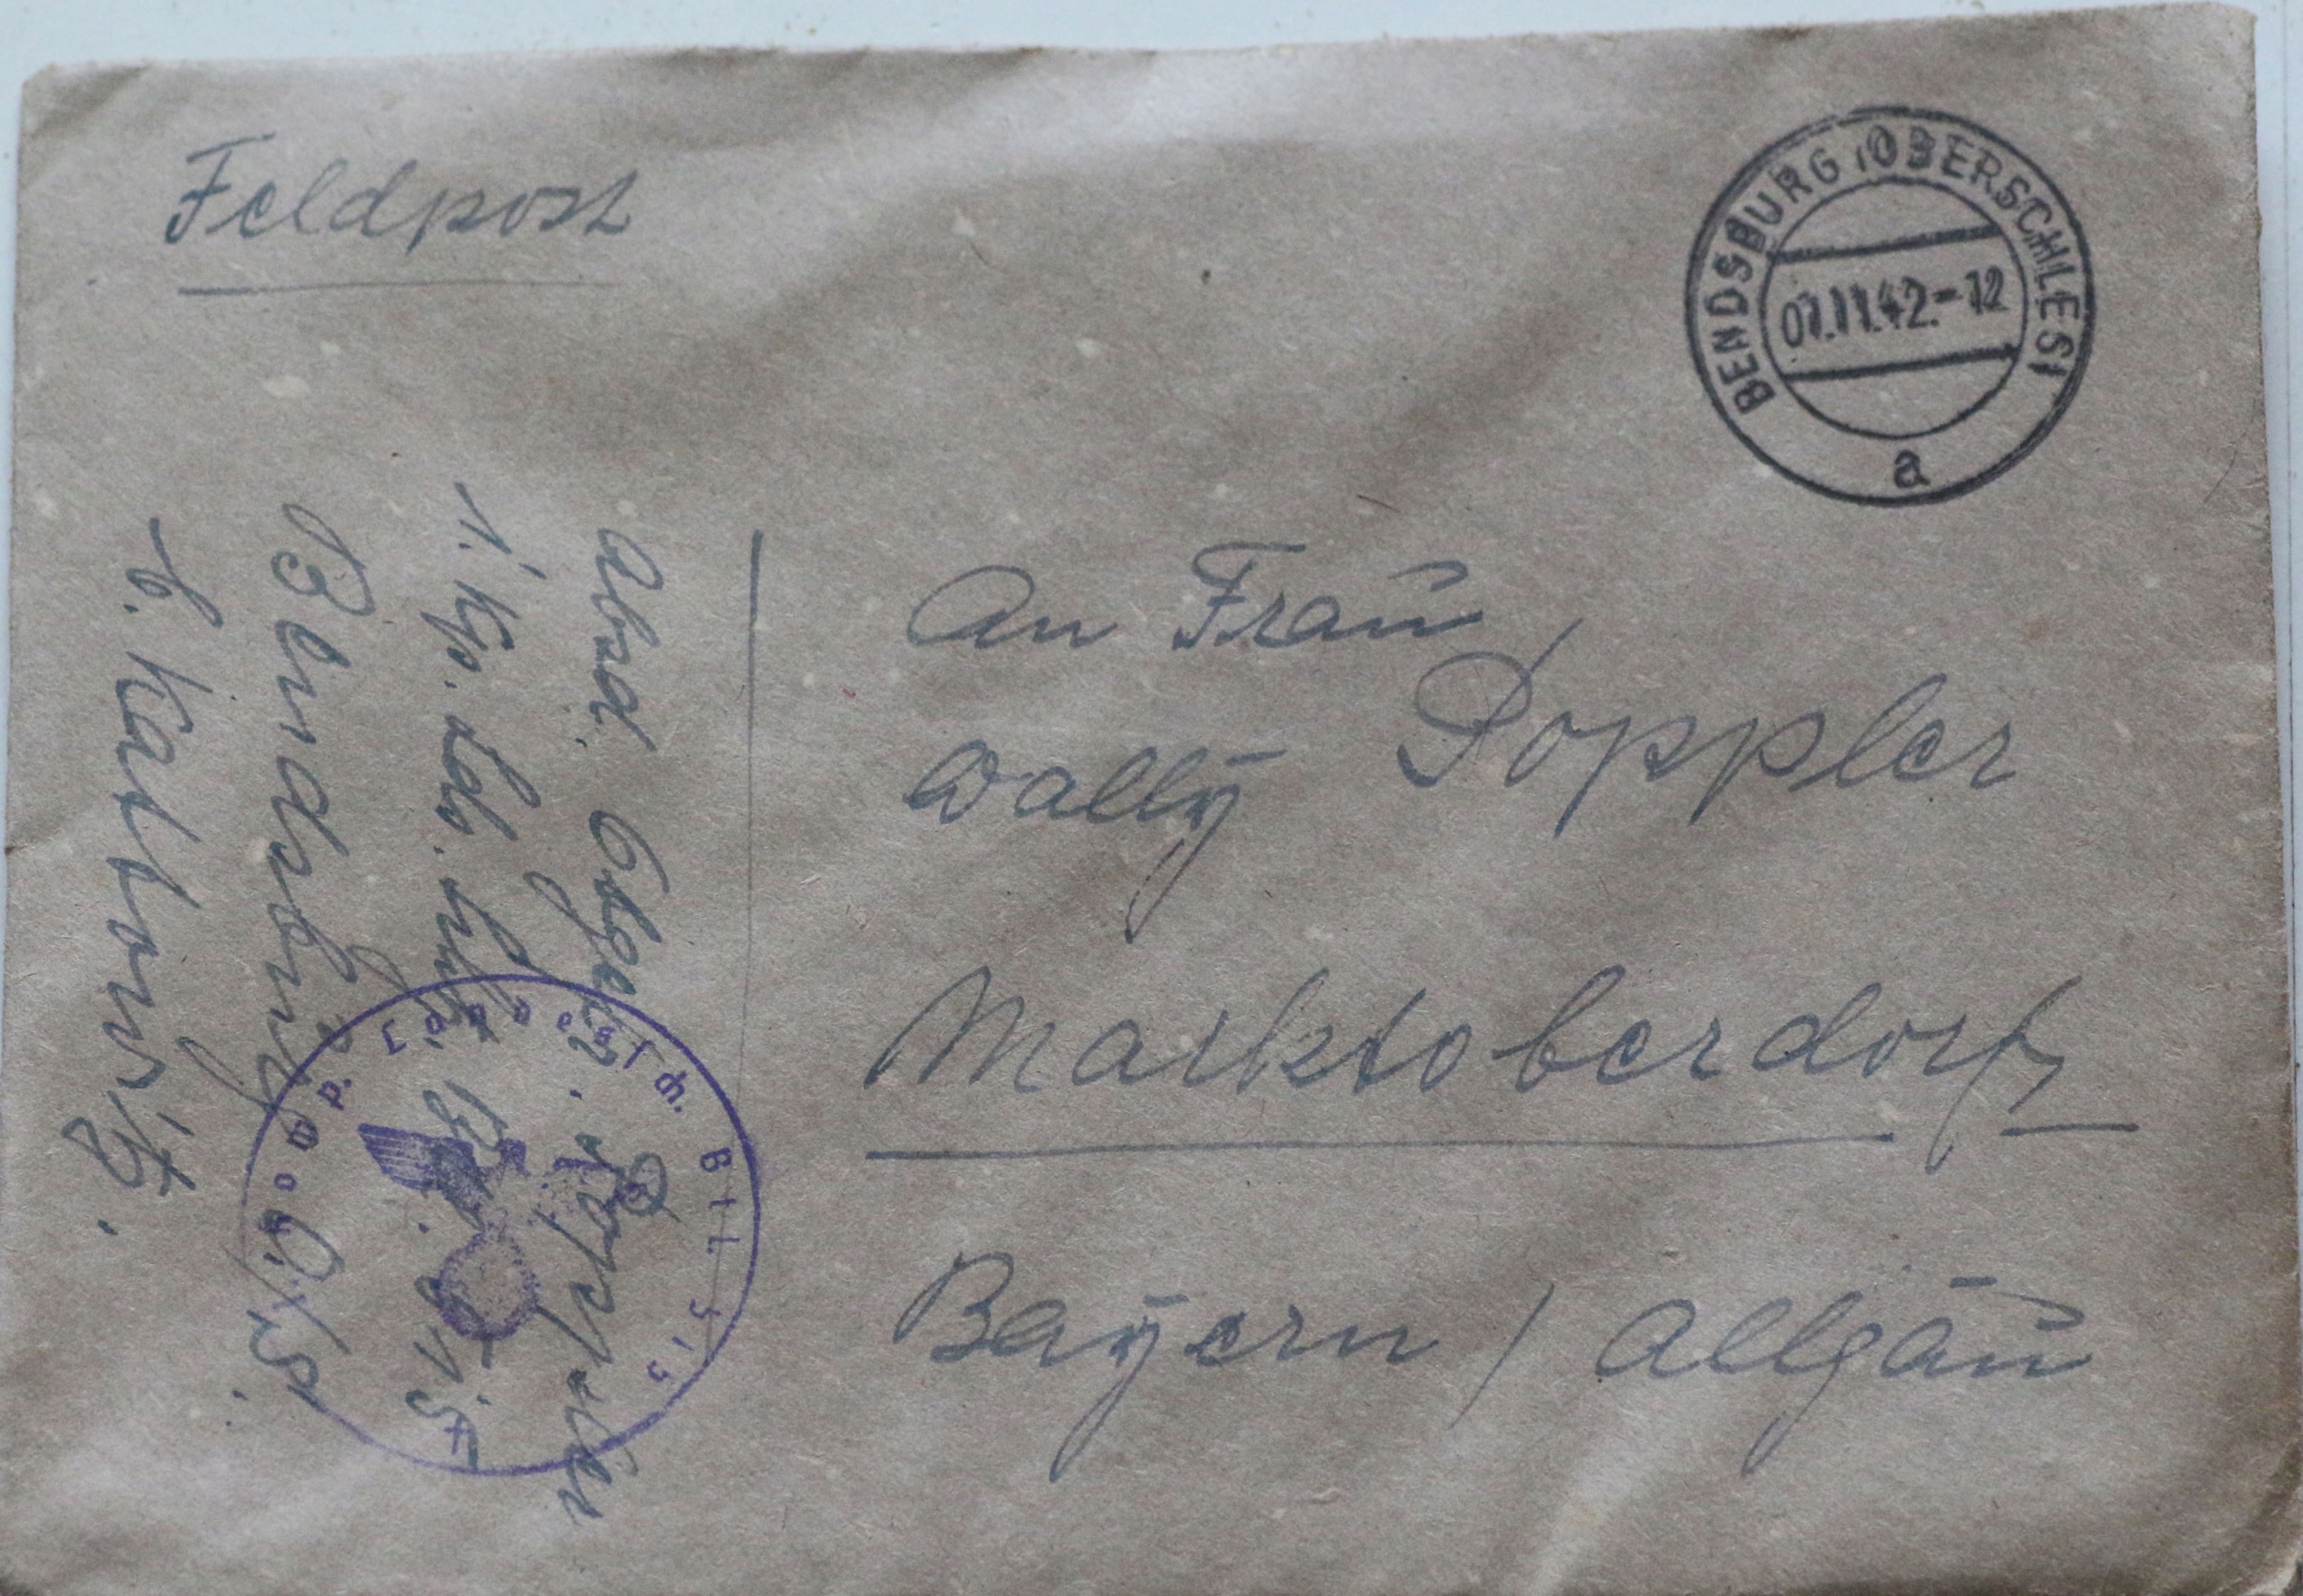 Feldpost
BENDSBURG (OBERSCHLES)
01.11.42.-12
a
An Frau
Wally Doppler
Marktoberdorf
Bayern / Allgäu
Absd. Obgefr. Doppler
1. Kp. Lds. Schtz. Btl. 515
Bendsburg O/S.
b. Kattowitz.
1. Komp. Landessch. Btl. 515